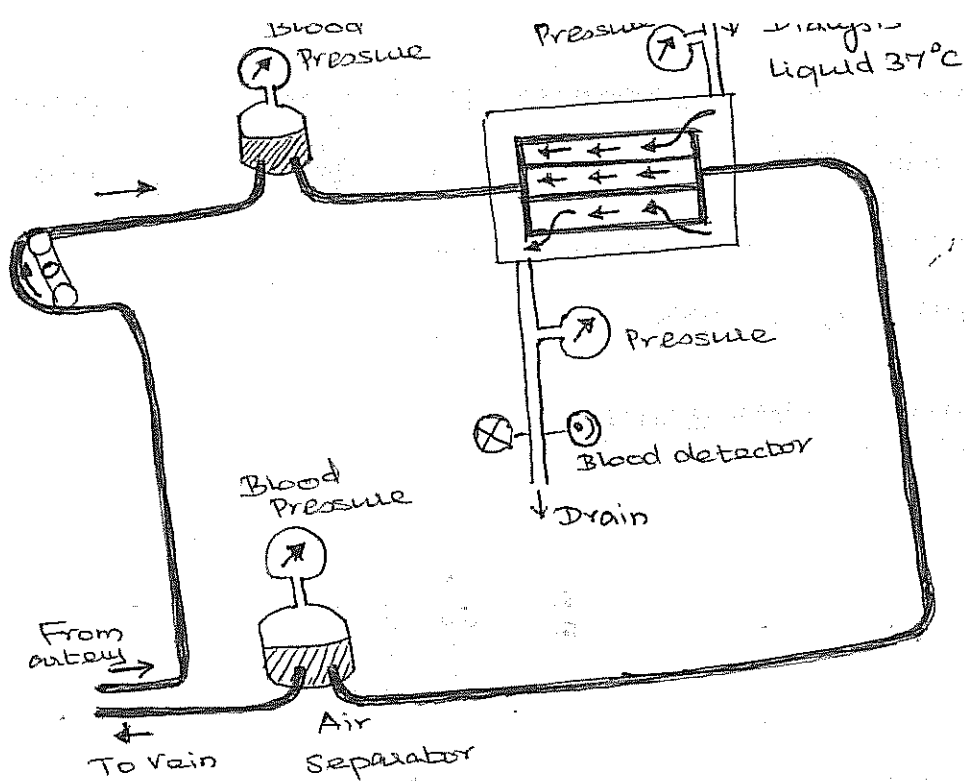 Blood
Pressure
Pressure
Dialysis
liquid 37°C
Pressure
Blood detector
Drain
Blood
Pressure
From
artery
To Vein
Air
separator